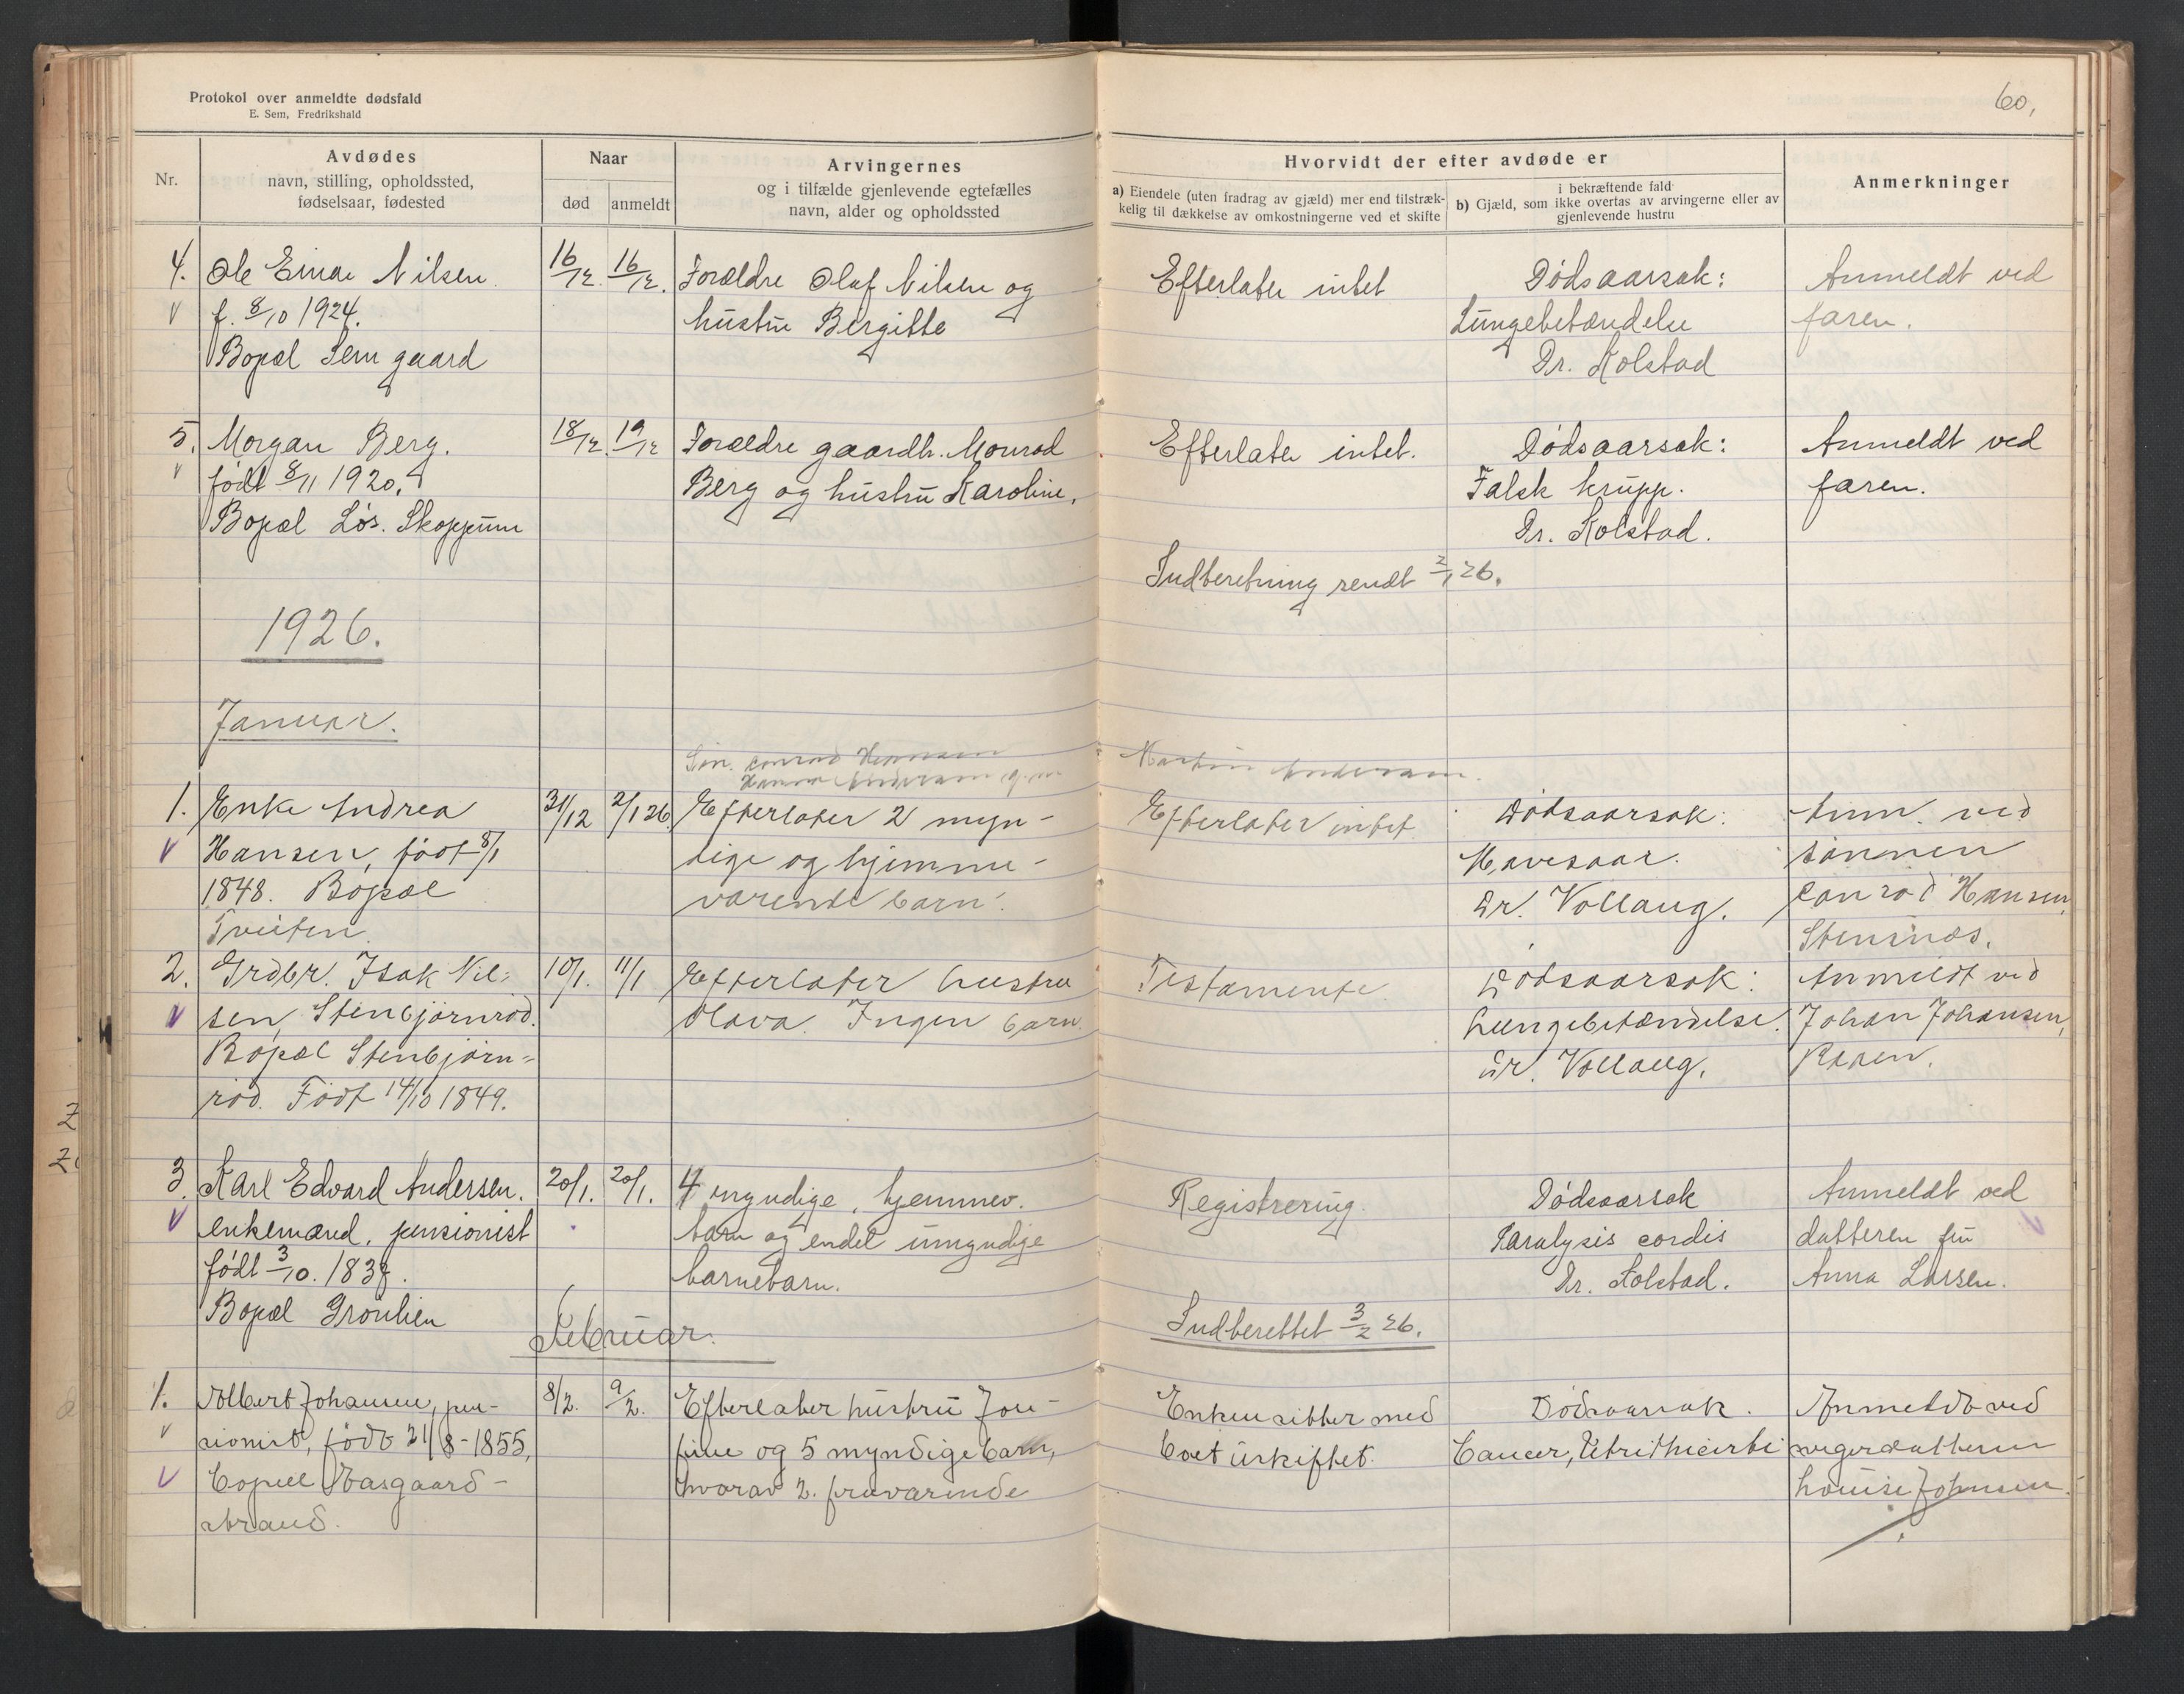 Protokol over anmeldte dødsfald
E. Sem, Fredrikshald
60,
Nr.
Avdødes
navn, stilling, opholdssted,
fødselsaar, fødested
Naar
død
anmeldt
Arvingernes
og i tilfælde gjenlevende egtefælles
navn, alder og opholdssted
Hvorvidt der efter avdøde er
a) Eiendele (uten fradrag av gjæld) mer end tilstræk-
kelig til dækkelse av omkostningerne ved et skifte
i bekræftende fald
b) Gjæld, som ikke overtas av arvingerne eller av
gjenlevende hustru
Anmerkninger
4. Ole Einar Nilsen. 16/12. 16/12. Forældre Olaf Nilsen og Efterlater intet Dødsaarsak: Anmeldt ved
f. 8/10 1924. hustru Bergitte Lungebetændelse faren.
Bopæl Sem gaard Dr. Kolstad
5. Morgan Berg. 18/12. 19/12 Forældre gaardbr. Monrad Efterlater intet. Dødsaarsak: Anmeldt ved
født 8/11 1920. Berg og hustru Karoline. Falsk krupp. faren.
Bopæl Løs. Skoppum Dr. Kolstad.
Indberetning sendt 2/1 26.
1926.
Januar.
Søn. Conrad Hansen
Andersen Martin Andersen.
1. Enke Andrea 31/12 2/1 26. Efterlater 2 myn- Efterlater intet. Dødsaarsak: Anm. ved
Hansen, født 8/1 dige og hjemme- Mavesaar. sønnen
1848. Bopæl værende barn. Dr. Vollaug. Conrad Hansen,
Tveiten. Stensnæs.
2. Grdbr. Isak Nil- 10/1. 11/1 Efterlater hustru Testamente. Dødsaarsak: Anmeldt ved
sen, Stenbjørnrød. Olava. Ingen barn. Lungebetændelse. Johan Johansen,
Bopæl Stenbjørn- Dr. Vollaug.
rød. Født 14/10 1849.
3. Karl Edvard Andersen. 20/1. 20/1. 4 myndige, hjemmev. Registrering. Dødsaarsak Anmeldt ved
enkemand, pensionist barn og endel umyndige Paralysis cordis datteren fru
født 3/10. barnebarn. Dr. Kolstad. Anna Larsen.
Bopæl Grønlien
Februar.
Indberettet 3/2 26.
1. Albert Johansen, pen- 8/2. 9/2. Efterlater hustru Jose- Enken sitter med Dødsaarsak. Anmeldt ved
sionist, født 21/8-1855, fine og 5 myndige barn, boet uskiftet. Cancer, svigerdatteren
bopæl Vasgaard- hvorav 2. fraværende Louise Johnsen.
strand.